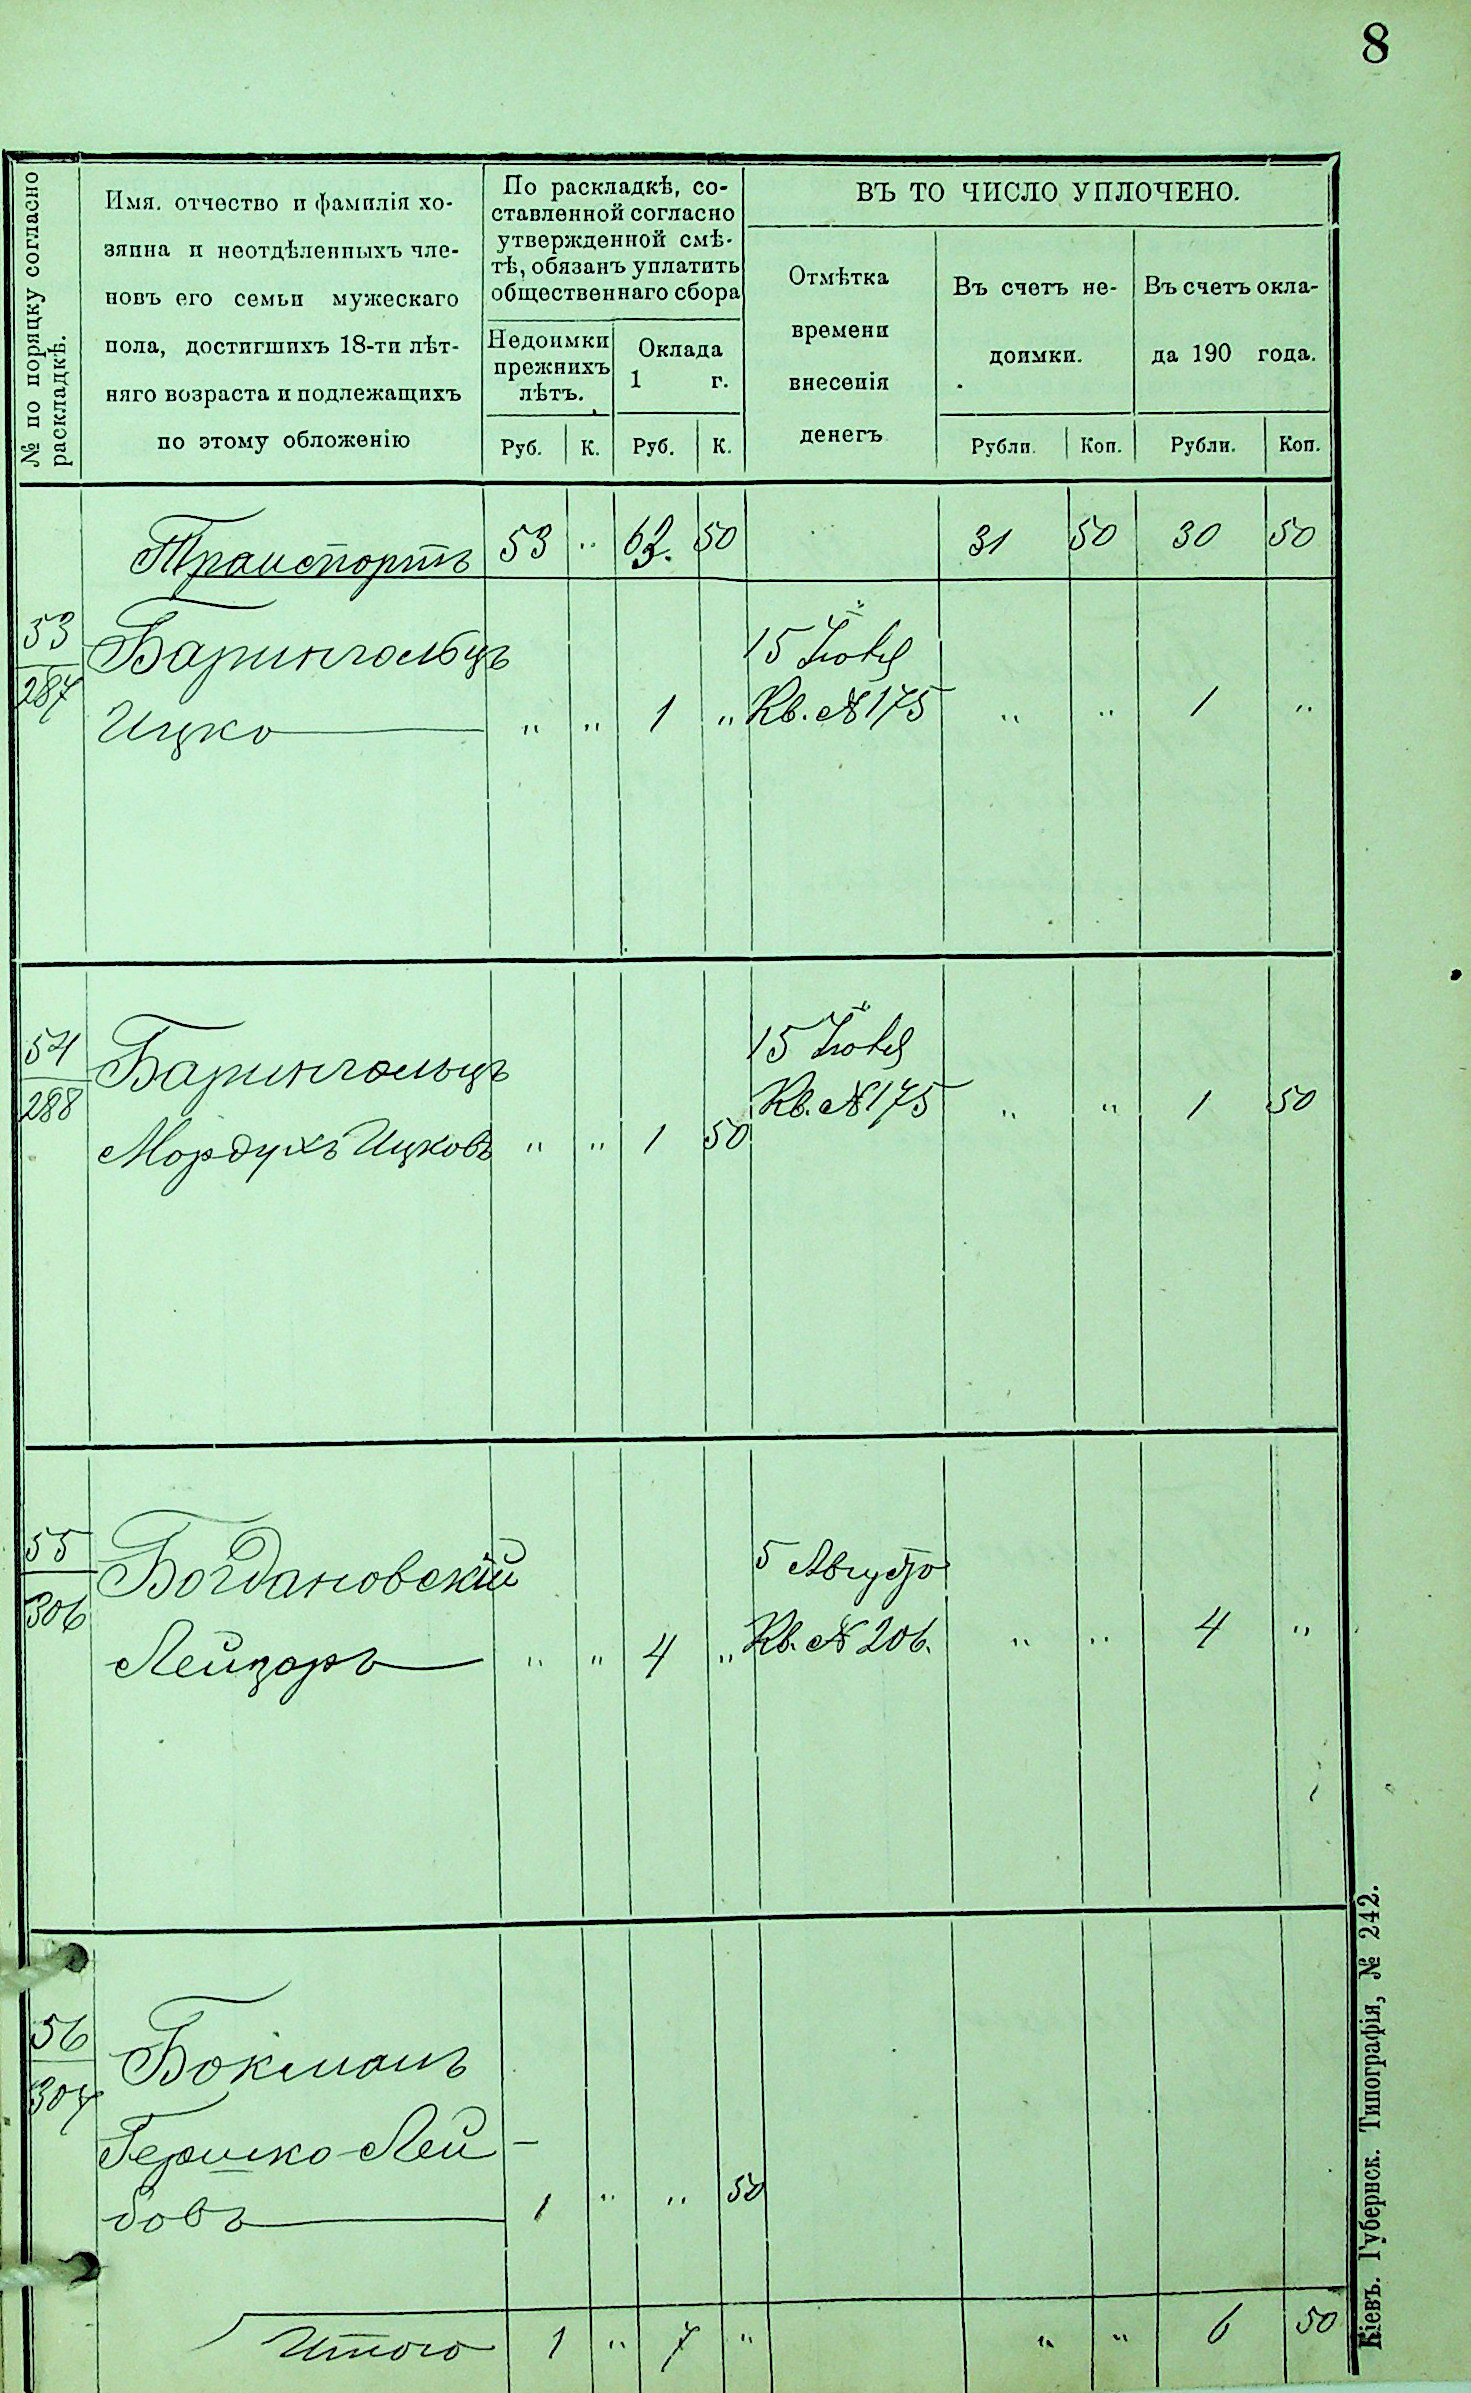 8
№ по поряцку согласно
раскладкѣ.
Имя. отчество и фамилія хо-
зяина и неотдѣленныхъ чле-
новъ его семьи мужескаго
пола, достигшихъ 18-ти лѣт-
няго возраста и подлежащихъ
по этому обложенію
По раскладкѣ, со-
ставленной согласно
утвержденной смѣ-
тѣ, обязанъ уплатить
общественнаго сбора
Недоимки
прежнихъ
лѣтъ.
Оклада
1 г.
Руб. К. Руб. К.
ВЪ ТО ЧИСЛО УПЛОЧЕНО.
Отмѣтка
времени
внесенія
денегъ
Въ счетъ не-
доимки.
Въ счетъ окла-
да 190 года.
Рубли. Коп. Рубли. Коп.
Транспортъ 53 " 62. 50 31 50 30 50
53
287
Барингольцъ
15 Іюня
Ицко " " 1 " Кв. № 175 " " 1 "
54
288
Барингольцъ
15 Іюня
Кв. № 175 " " 1 50
Мордухъ Ицковъ " " 1 50
55
306
Богдановскій
5 Августа
Лейзоръ " " 4 " Кв. № 206. " " 4 "
56
307
Бокманъ
Гершко Лей-
бовъ 1 " " 50
Итого 1 " 7 " " " 6 50
Кіевъ. Губернск. Типографія, № 242.